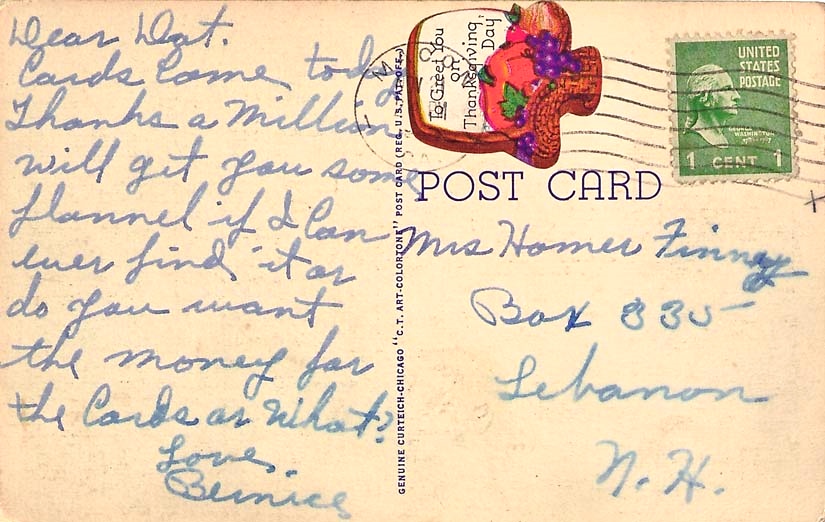 Dear Dot.
Cards Came today
Thanks a Million
will get you some
flannel if I Can
ever find it or
do you want
the money for
the Cards or What?
Love,
Bernice
To Greet You
on
Thanksgiving
Day
UNITED
STATES
POSTAGE
GEORGE
WASHINGTON
1 CENT 1
POST CARD
Mrs Homer Finney
Box 335
Lebanon
N. H.
GENUINE CURTEICH-CHICAGO "C.T. ART-COLORTONE" POST CARD (REG. U.S. PAT. OFF.)